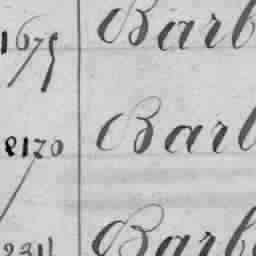 1675 Barb
2170 Barb
2311 Barb